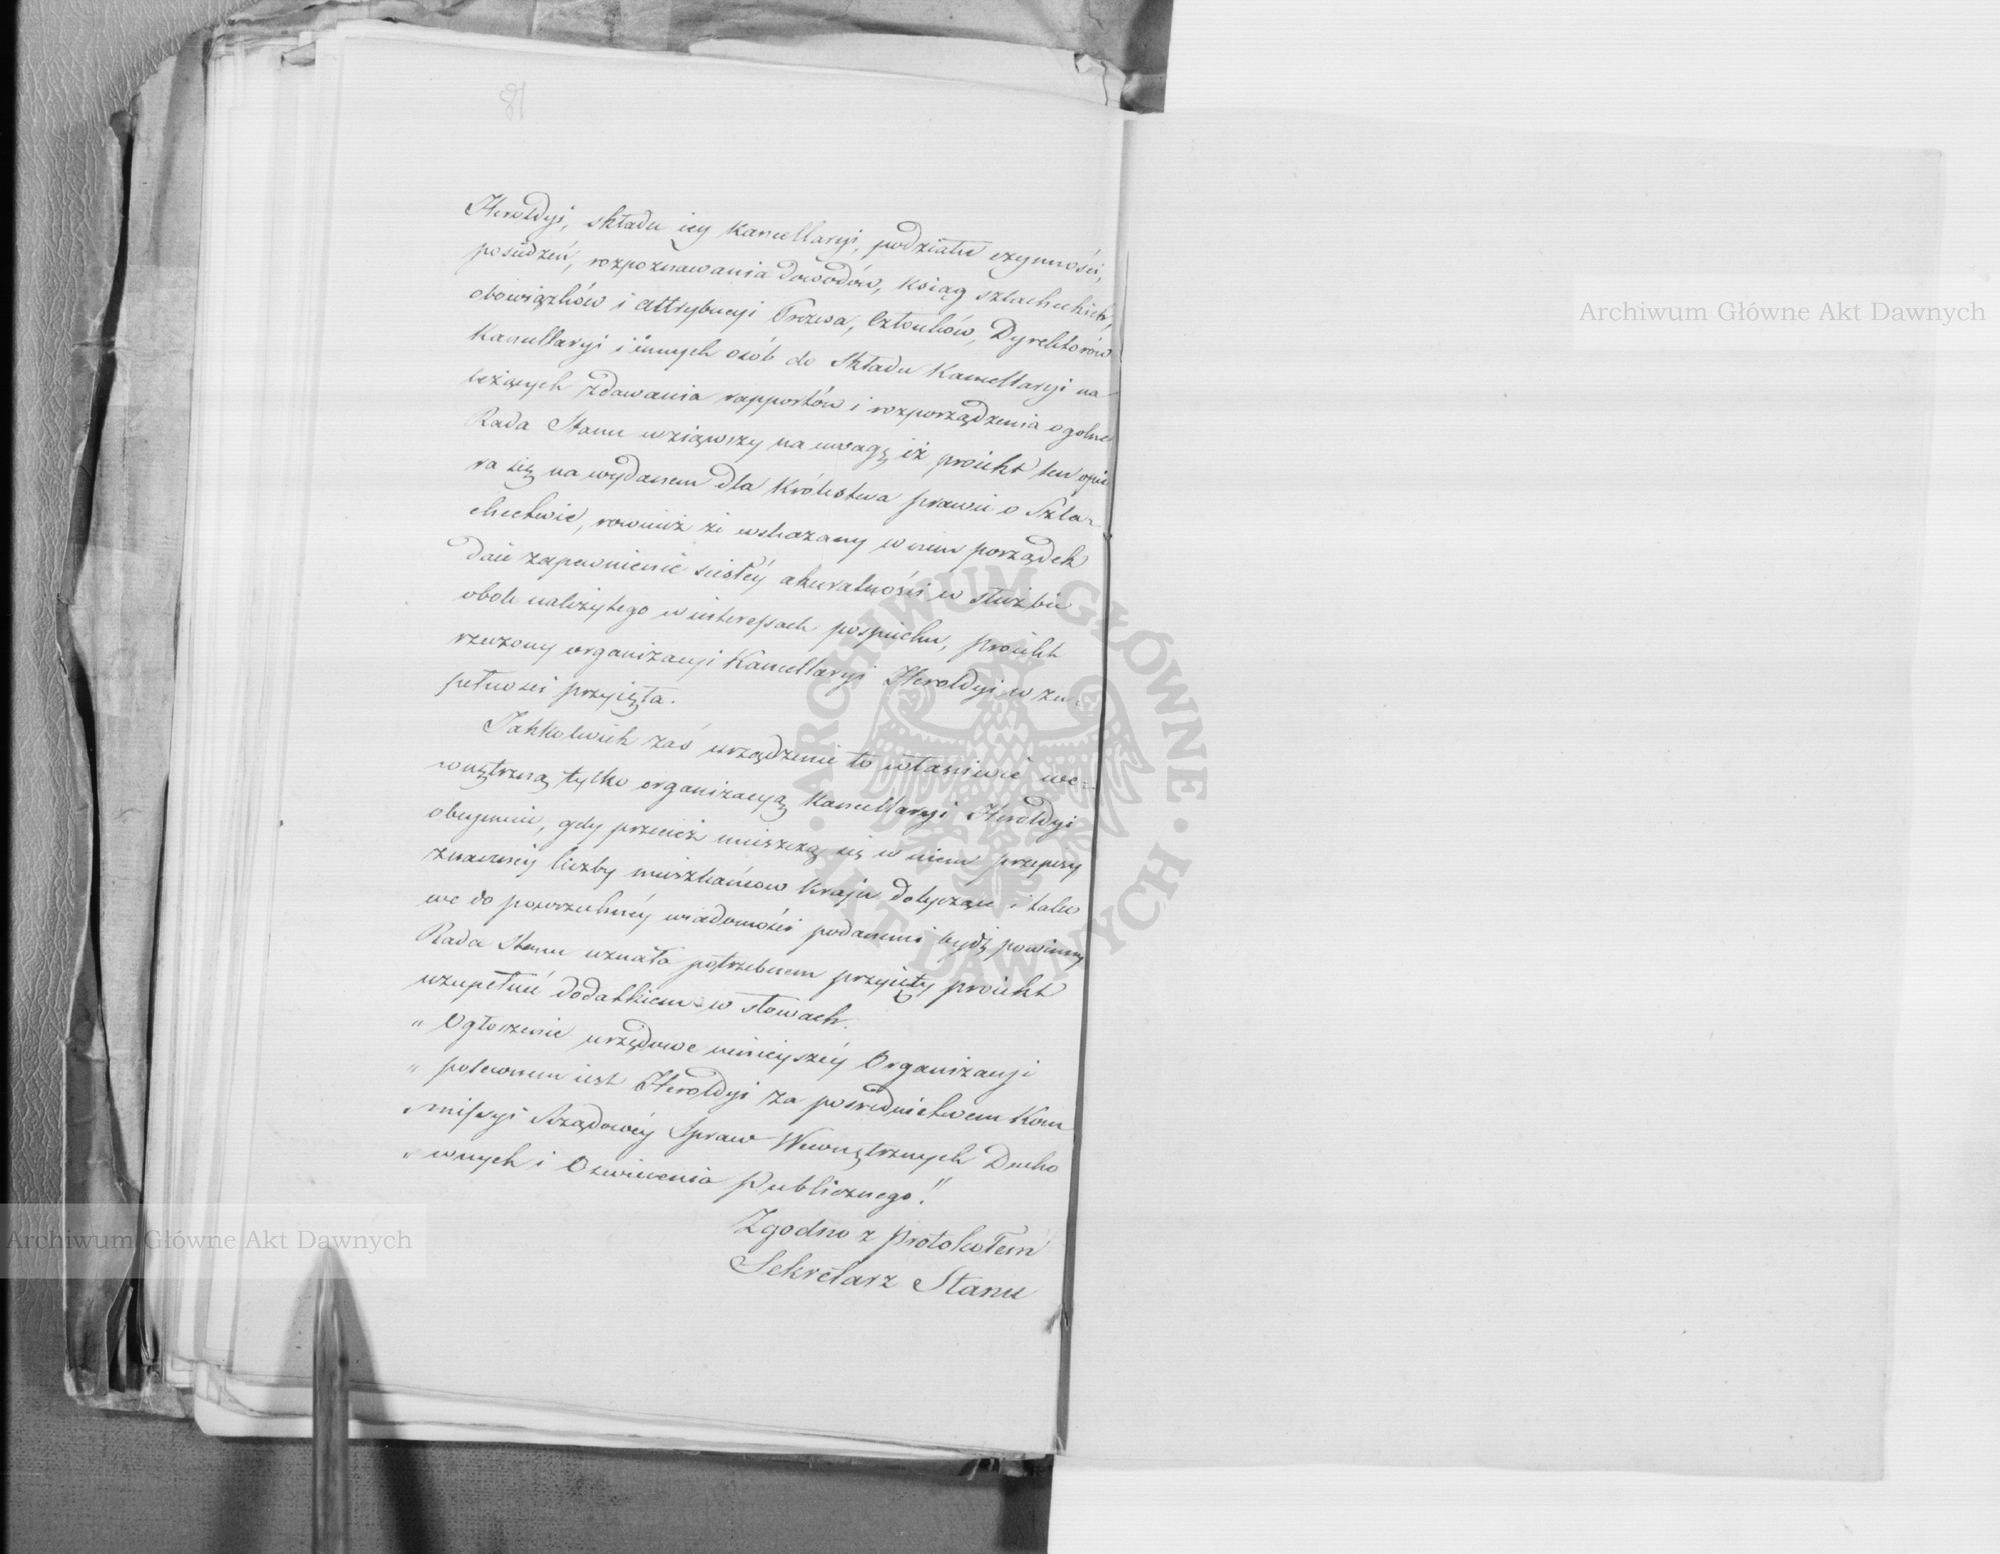 Heroldyi, składu iey Kancellaryi, podziału czynności,
posiedzeń, rozpoznawania dowodów, Ksiąg szlacheckich,
obowiązków i attrybucyi Prezesa, Członków, Dyrektorów
Kancellaryi i innych osób do Składu Kancellaryi na
leżących zdawania rapportów i rozporządzenia ogolne
Rada Stanu wziąwszy na uwagę iż proiekt ten opie
ra się na wydanem dla Królestwa prawie o Szla-
chectwie, rownież że wskazany w niem porządek
daie zapewnienie scisłéy akuratności w służbie
obok należytego w interessach pospiechu, proiekt
rzeczony organizacyi Kancellaryi Heroldyi w zu-
pełności przyięła.
Jakkolwiek zaś urządzenie to właściwie we-
wnętrzną tylko organizacyą Kancellaryi Heroldyi
obeymuie, gdy przecież mieszczą się w niem przepisy
znaczney liczby mieszkańcow Kraju dotyczące i tako
we do powszechnéy wiadomości podanemi bydź powinny
Rada Stanu uznała potrzebnem przyięty proiekt
uzupełnić dodatkiem w słowach.
„ Ogłoszenie urzędowe ninieyszéy Organizacyi
„ polecone iest Heroldyi za pośrednictwem Kom
„ missyi Rządowéy Spraw Wewnętrznych Ducho
„ wnych i Oswiecenia Publicznego."
Zgodno z protokołem
Sekretarz Stanu
Archiwum Główne Akt Dawnych
Archiwum Główne Akt Dawnych
ARCHIWUM GŁÓWNE · AKT DAWNYCH ·